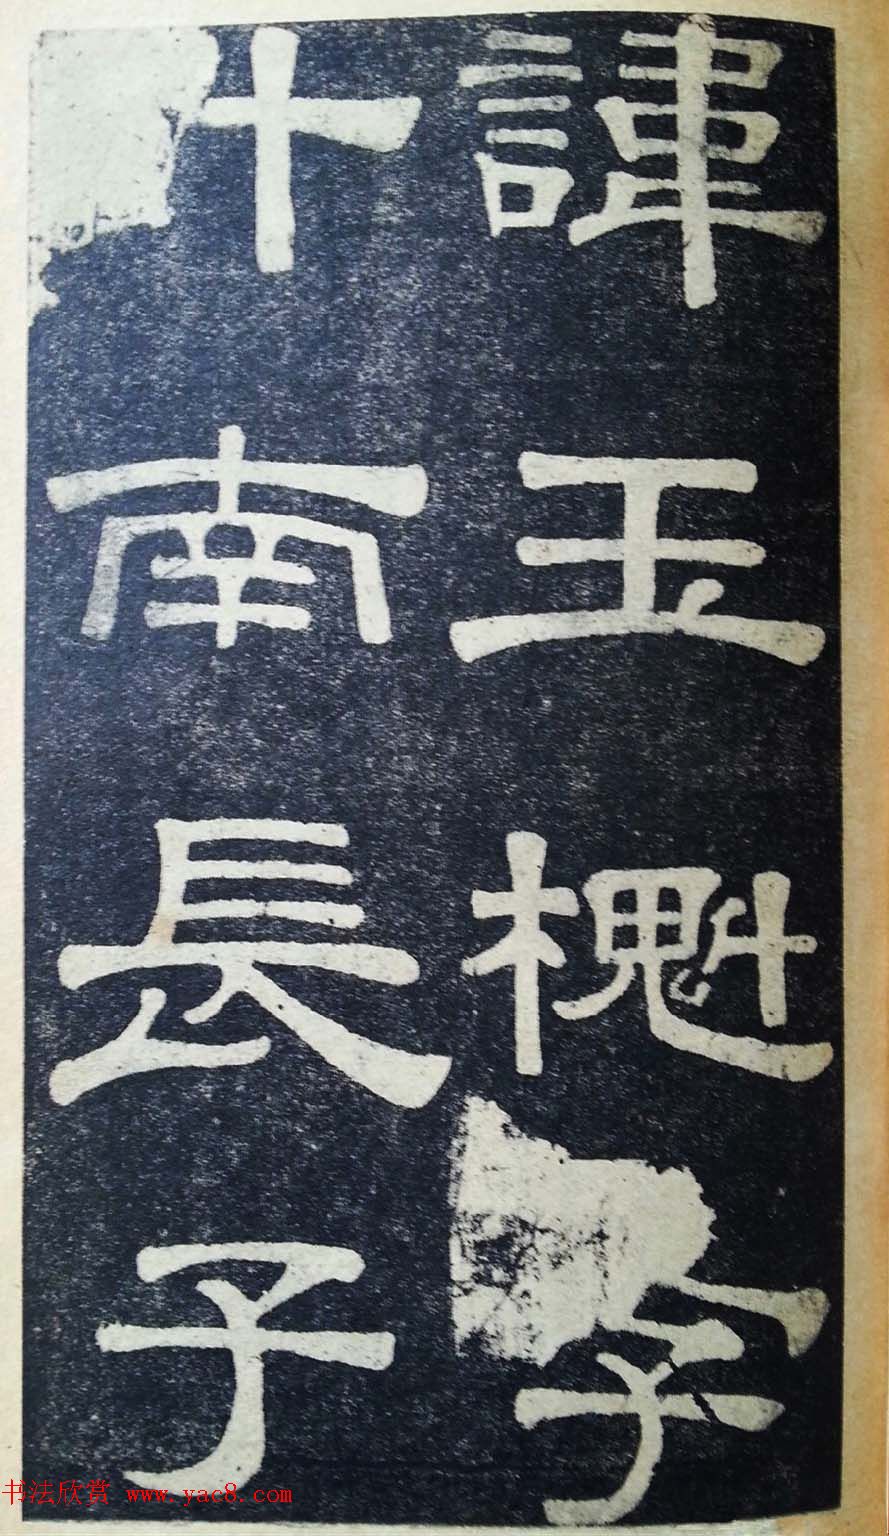 諱玉櫆字
斗南長子
书法欣赏 www.yac8.com